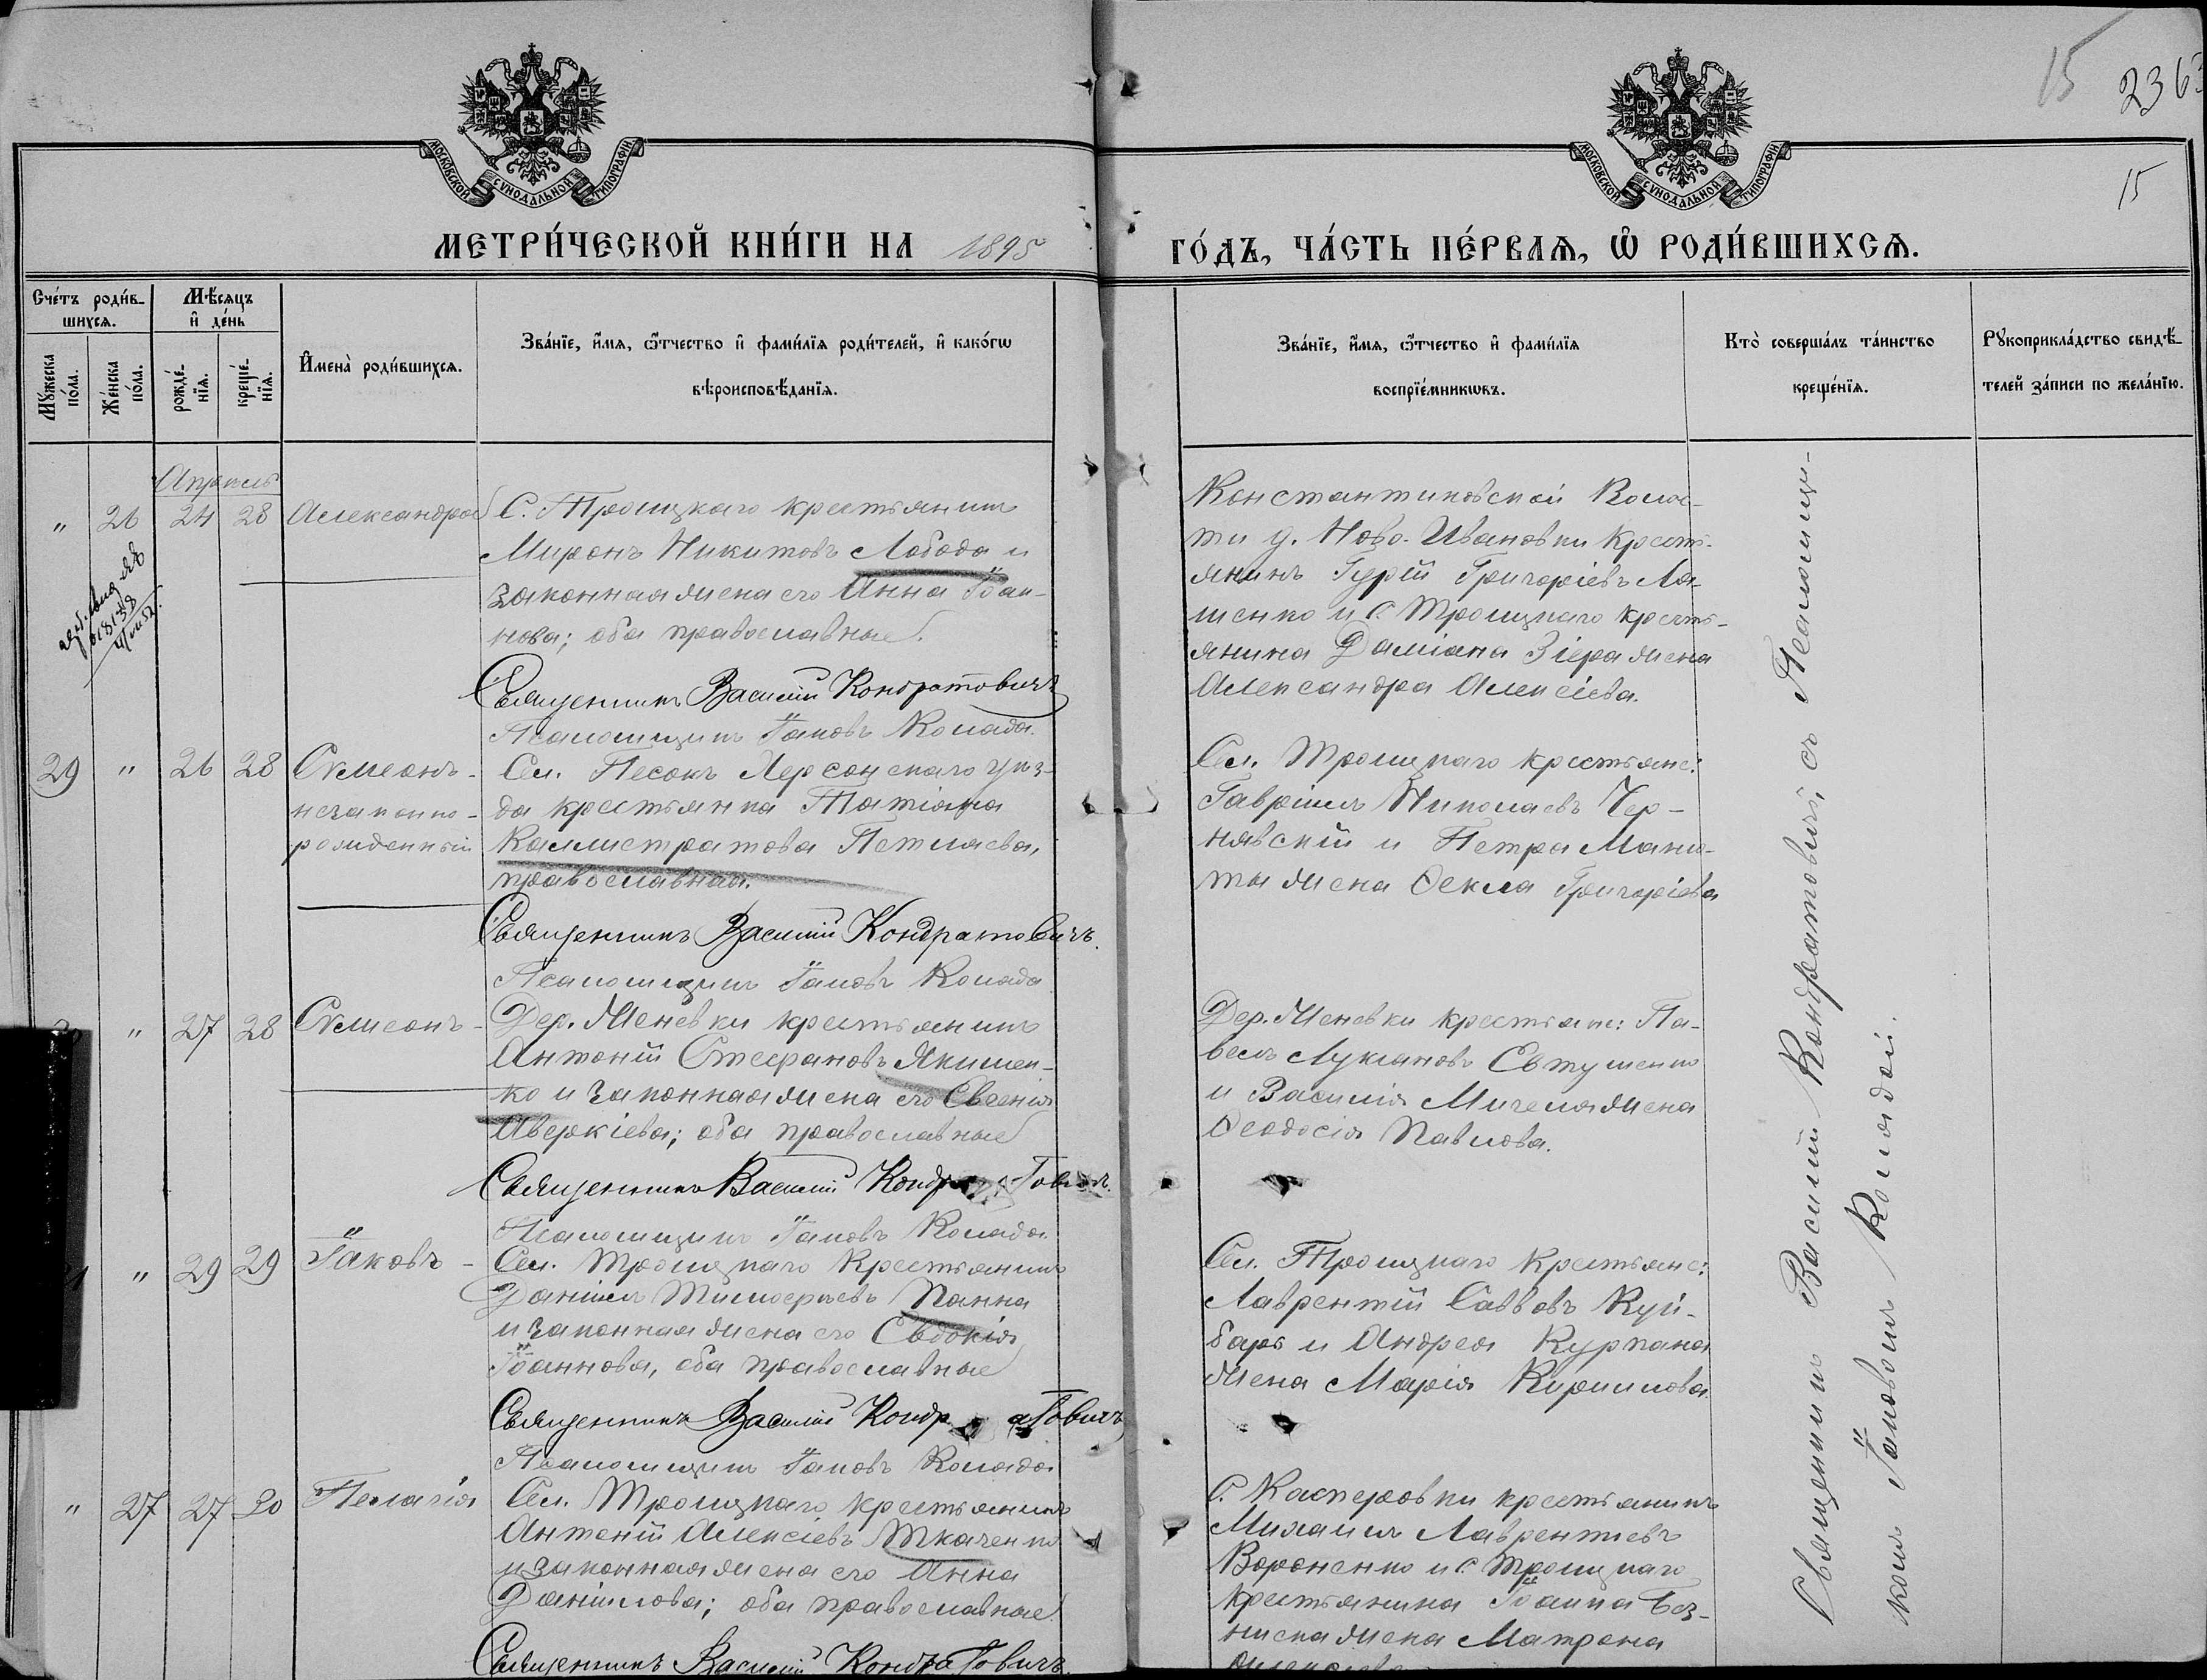 15 236
15
МОСКОВСКОЙ СѴНОДАЛЬНОЙ ТИПОГРАФІИ
МОСКОВСКОЙ СѴНОДАЛЬНОЙ ТИПОГРАФІИ
МЕТРИ́ЧЕСКОЙ КНИ́ГИ НА 1895
ГО́ДЪ, ЧА́СТЬ ПЕ́РВАѦ, Ѡ҆ РОДИ́ВШИХСѦ.
Сче́тъ роди́в-
шихсѧ.
Мꙋ́жеска по́ла.
Же́нска по́ла.
Мѣ́сѧцъ
и҆ де́нь
рожде́-
нїѧ.
креще́-
нїѧ.
И҆мена̀ роди́вшихсѧ.
Зва́нїе, и҆́мѧ, ѻ҆́тчество и҆ фами́лїѧ роди́телей, и҆ како́гѡ
вѣроисповѣ́данїѧ.
Зва́нїе, и҆́мѧ, ѻ҆́тчество и҆ фами́лїѧ
воспрїе́мникѡвъ.
Кто̀ соверша́лъ та́инство
креще́нїѧ.
Рꙋкоприкла́дство свидѣ́-
телей за́писи по жела́нїю.
Апрель
" 26 24 28 Александра
С. Троицкаго крестьянинъ
Миронъ Никитовъ Лобода и
законная жена его Анна Іоан-
нова; оба православные.
Священникъ Василій Кондратовичъ
Псаломщикъ Іаковъ Коляда.
Константиновской Волос-
ти д. Ново-Ивановки крест-
янинъ Гурій Григоріевъ Ля-
шенко и с. Троицкаго кресть-
янина Даміана Зіера жена
Александра Алексіева.
29 " 26 28 Сѵмеонъ-
незаконно-
рожденный
Сел. Песокъ Херсонскаго уѣз-
да крестьянка Татіана
Каллистратова Петлаева,
православная.
Священникъ Василій Кондратовичъ.
Псаломщикъ Іаковъ Коляда
Сел. Троицкаго крестьяне:
Гавріилъ Николаевъ Чер-
нявскій и Петра Маню-
ты жена Ѳекла Григоріева
" 27 28 Сѵмеонъ-
Дер. Женевки крестьянинъ
Антоній Стефановъ Якимен-
ко и законная жена его Евгенія
Аверкіева; оба православные
Священникъ Василій Кондратовичъ.
Псаломщикъ Іаковъ Коляда
Дер. Женевки крестьяне: Па-
велъ Лукіановъ Евтушенко
и Василія Мигеля жена
Ѳеодосія Павлова.
" 29 29 Іаковъ -
Сел. Троицкаго крестьянинъ
Даніилъ Тимоѳеевъ Панна
и законная жена его Евдокія
Іоаннова, оба православные
Священникъ Василій Кондратовичъ
Псаломщикъ Іаковъ Коляда
Сел. Троицкаго крестьяне:
Лаврентій Саввовъ Куй-
баръ и Андрея Курпана
жена Марія Кириллова.
" 27 27 30 Пелагія
Сел. Троицкаго крестьянинъ
Антоній Алексіевъ Ткаченко
и законная жена его Анна
Даніилова; оба православные
Священникъ Василій Кондратовичъ.
С. Касперовки крестьянинъ
Михаилъ Лаврентіевъ
Вороненко и с. Троицкаго
крестьянина Іоанна Без-
жена Матрона
Священникъ Василій Кондратовичъ, съ Псаломщи-
комъ Іаковомъ Колядой.